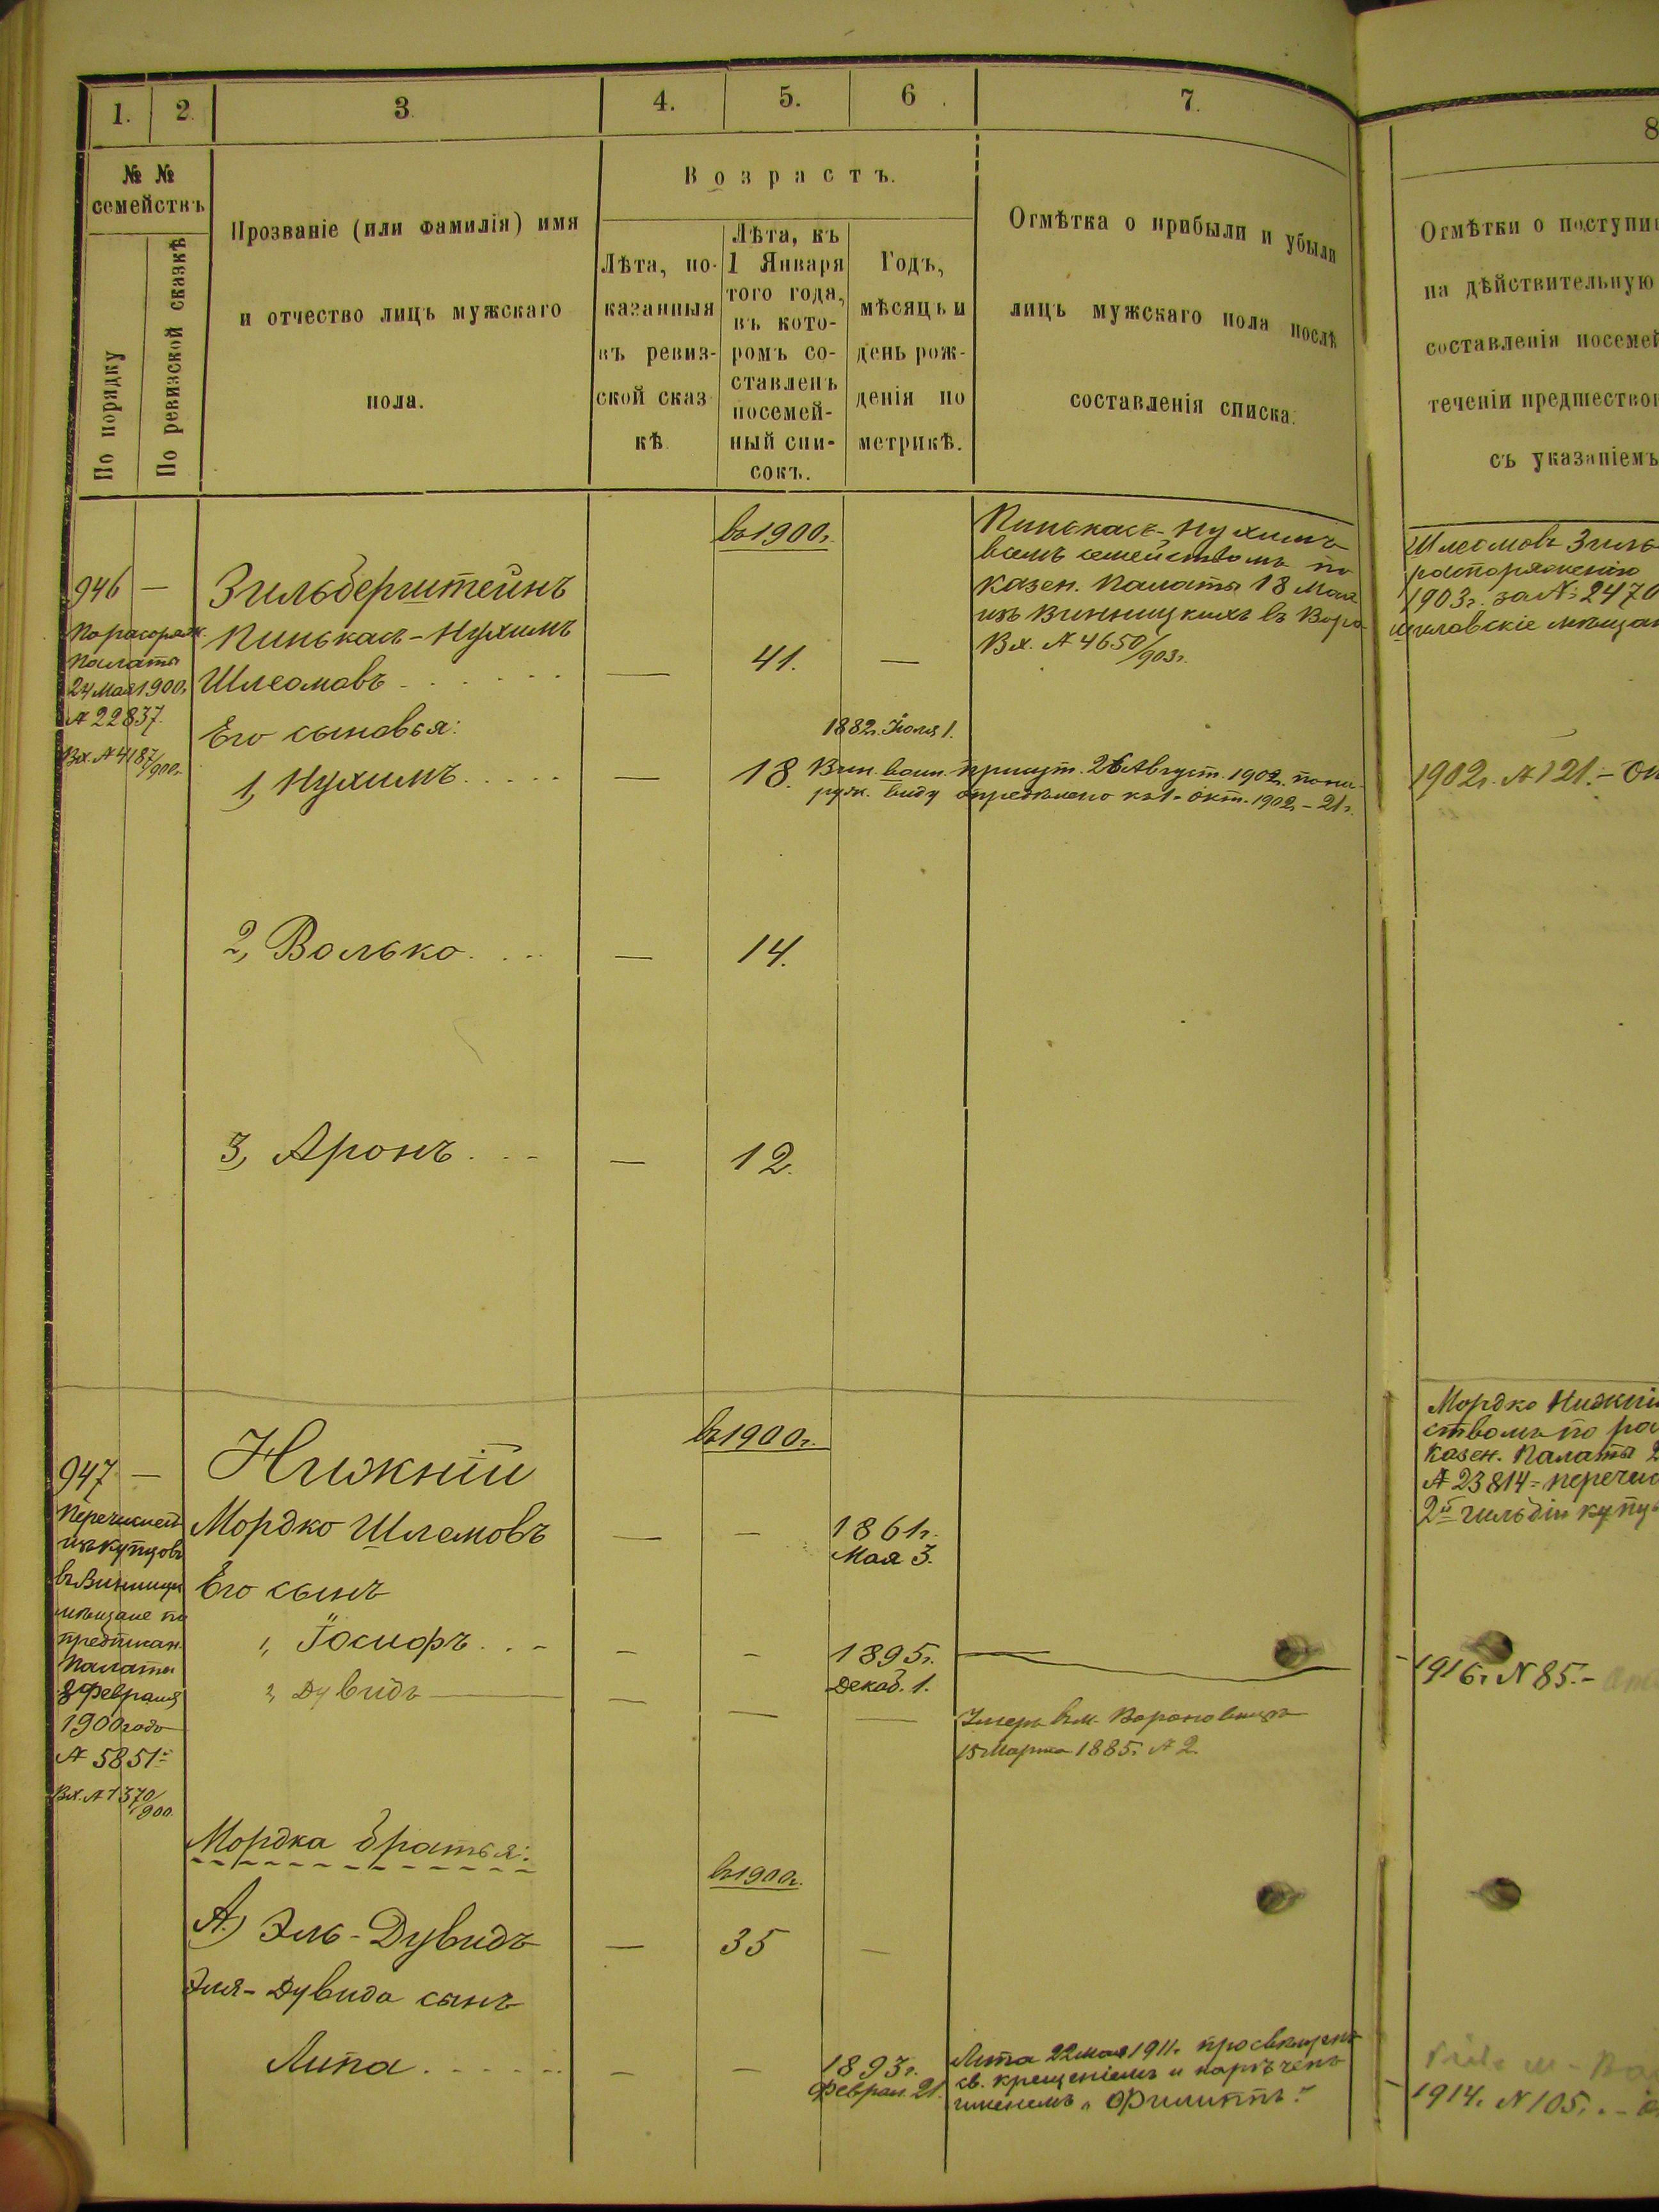 1.
2.
3
4.
5.
6.
7.
8
№ №
семействъ
По порядку
По ревизской сказкѣ
Прозваніе (или фамилія) имя
и отчество лицъ мужскаго
пола.
Возрастъ.
Лѣта, по-
казанныя
въ ревиз-
ской сказ
кѣ.
Лѣта, къ
1 Января
того года,
въ кото-
ромъ со-
ставленъ
посемей-
ный спи-
сокъ.
Годъ,
мѣсяцъ и
день рож-
денія по
метрикѣ.
Отмѣтка о прибыли и убыли
лицъ мужскаго пола послѣ
составленія списка.
Отмѣтки о поступи
на дѣйствительную
составленія посемей
теченіи предшество
съ указаніемъ
въ 1900г.
946 —
По распоряж.
Палаты
24 Мая 1900г.
№ 22837.
Вх. № 4187/900г.
Зильберштейнъ
Пинькасъ-Нухимъ
Шлеомовъ . . . . . . — 41. —
Пинькасъ-Нухимъ
всемъ семействомъ по
казен. Палаты 18 Мая
изъ Винницкихъ въ Воро
Вх. № 4650/903г.
Шлеомовъ Зиль
распоряженію
1903г. за № 2470
шиловскіе мѣщан
Его сыновья:
1, Нухимъ . . . . . — 18.
1882г. Іюля 1.
Вин. воин. присут. 26 Август. 1902г. по на-
руж. виду опредѣлено къ 1 окт. 1902г. – 21г.
1902г. № 121. –
2, Волько . . . — 14.
3, Аронъ . . . — 12.
въ 1900г.
947 —
Перечислен
изъ купцовъ
въ Винницк
мѣщане по
предписан.
Палаты
8 Февраля
1900 года
№ 5851
Вх. № 1370/900.
Нижній
Мордко Шлемовъ — — 1861г.
Мая 3.
Мордко Нижній
ствомъ по ра
казен. Палаты 2
№ 23814 = перечис
2й гильдіи купц
Его сынъ
1, Іосифъ . . . — — 1895г.
Декаб. 1.
1916г. № 85. –
2, Дувидъ — — — —
Умеръ въ м. Вороновицѣ
15 Марта 1885г. № 2.
Мордка братья:
въ 1900г.
А.) Эль-Дувидъ — 35 —
Эля-Дувида сынъ
Липа . . . . . . — — 1893г.
Феврал. 21.
Липа 22 Мая 1911г. просвѣщенъ
св. крещеніемъ и нареченъ
именемъ „Филиппъ."
1914г. № 105. –